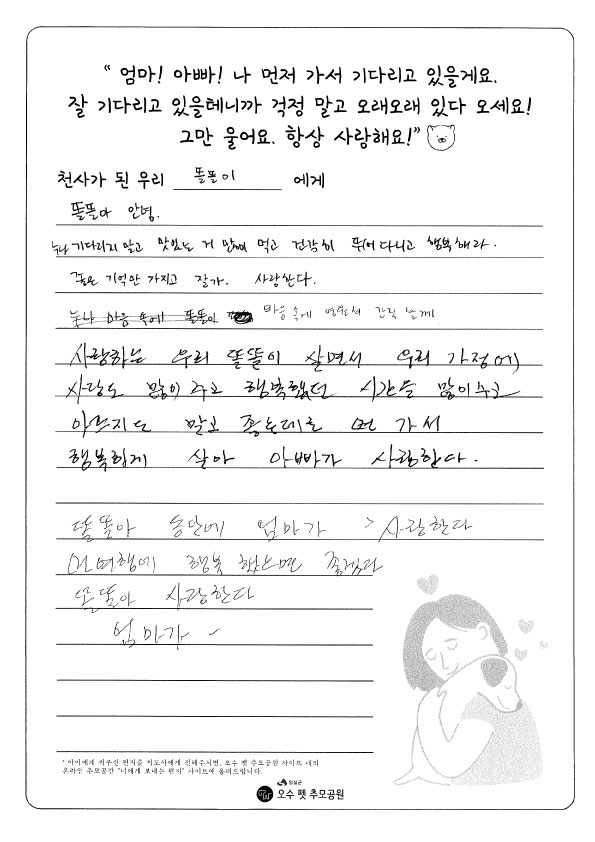 “ 엄마! 아빠! 나 먼저 가서 기다리고 있을게요.
잘 기다리고 있을테니까 걱정 말고 오래오래 있다 오세요!
그만 울어요. 항상 사랑해요!”
천사가 된 우리 똘똘이 에게
똘똘아 안녕.
누나 기다리지 말고 맛있는 거 많이 먹고 건강히 뛰어다니고 행복해라.
좋은 기억만 가지고 잘가. 사랑한다.
누나 마음 속에 똘똘이 마음 속에 간직 할게
사랑하는 우리 똘똘이 살면서 우리 가정에
사랑도 많이 주고 행복했던 시간을 많이 주고
아프지도 말고 좋은데로 가서
행복하게 살아 아빠가 사랑한다.
똘똘아 엄마가 사랑한다
행복 했으면 좋겠다
똘똘아 사랑한다
엄마가 -
* 아이에게 써주신 편지를 지도사에게 전해주시면, 오수 펫 추모공원 사이트 내의
온라인 추모공간 "너에게 보내는 편지" 사이트에 올려드립니다.
임실군
오수 펫 추모공원